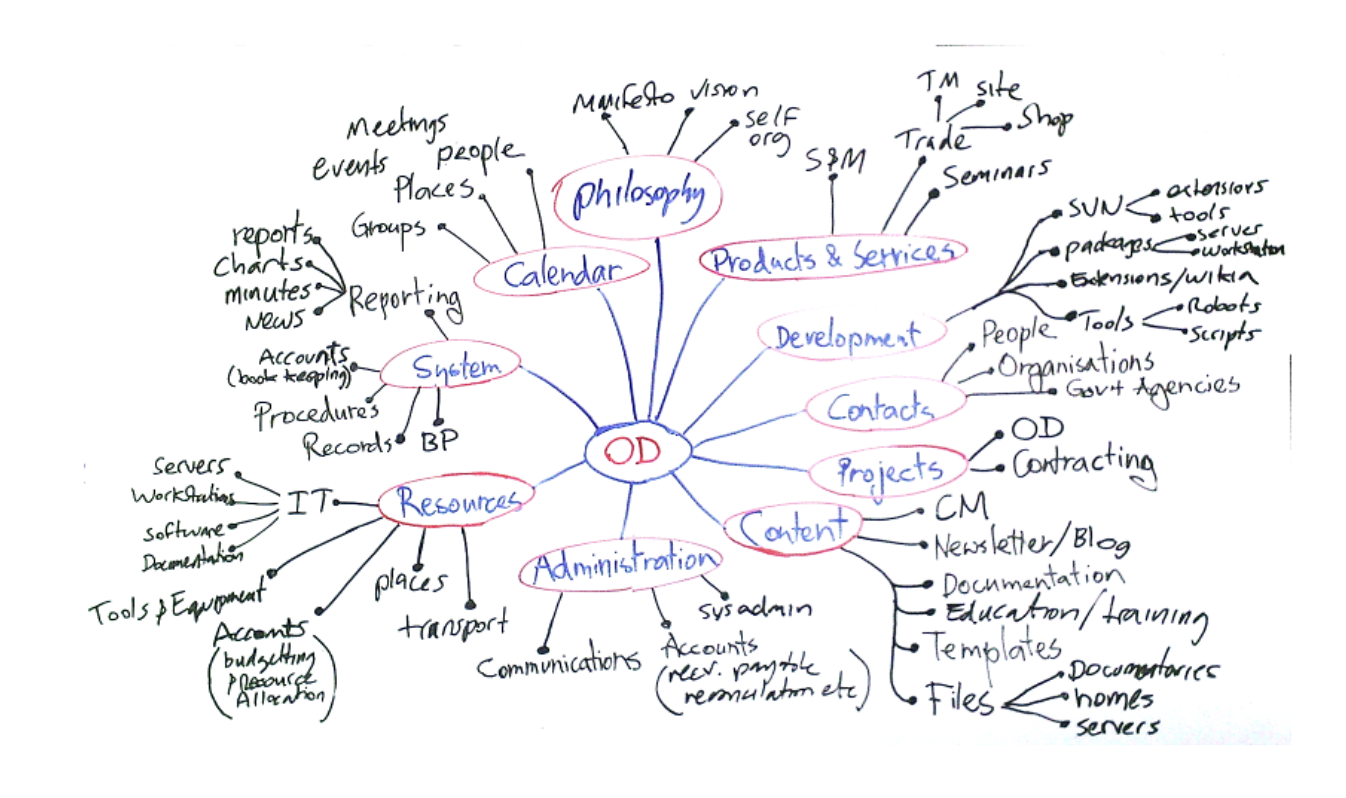 OD
Philosophy
Manifesto
vision
self
org
Products & Services
S&M
Trade
TM
site
Shop
Seminars
Development
SVN
extensions
tools
packages
server
workstation
Extensions/wikia
Tools
Robots
Scripts
Contacts
People
Organisations
Govt Agencies
Projects
OD
Contracting
Content
CM
Newsletter/Blog
Documentation
Education/training
Templates
Files
Documentaries
homes
servers
Administration
sysadmin
Accounts
(recv. payable
Communications
Resources
transport
places
Accounts
(budgetting
& resource
Allocation)
Tools & Equipment
IT
Servers
Workstations
Software
Documentation
System
BP
Records
Procedures
Accounts
(book keeping)
Reporting
reports
charts
minutes
News
Calendar
Groups
Places
people
events
Meetings